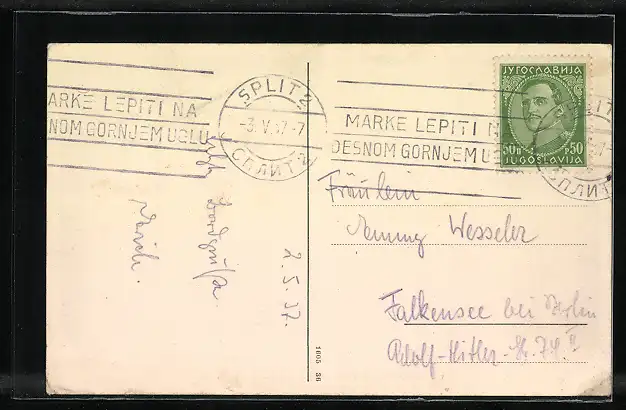 ARKE LEPITI NA
NOM GORNJEM UGLU
SPLIT 2
-3.V.37-7
СПЛИТ 2
MARKE LEPITI N
DESNOM GORNJEM U
ЈУГОСЛАВИЈА
50П P50
JUGOSLAVIJA
SPLIT
СПЛИТ
2.5.37.
Fräulein
Wesseler
Falkensee bei Berlin
Adolf-Hitler-Str. 74
1605 36